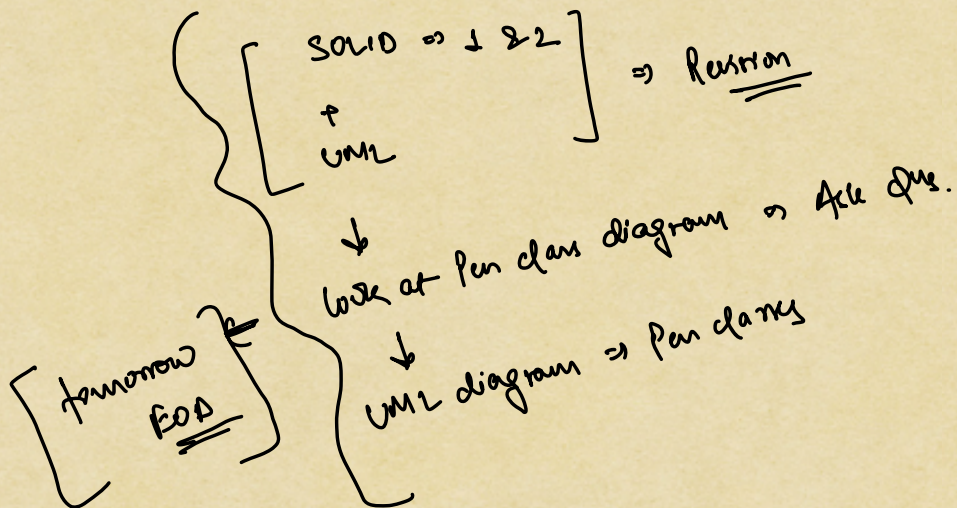 SOLID => 1 & 2 => Revision
+
UML
↓
look at Pen class diagram => Ask Qns.
↓
UML diagram => Pen classes
tomorrow
EOD